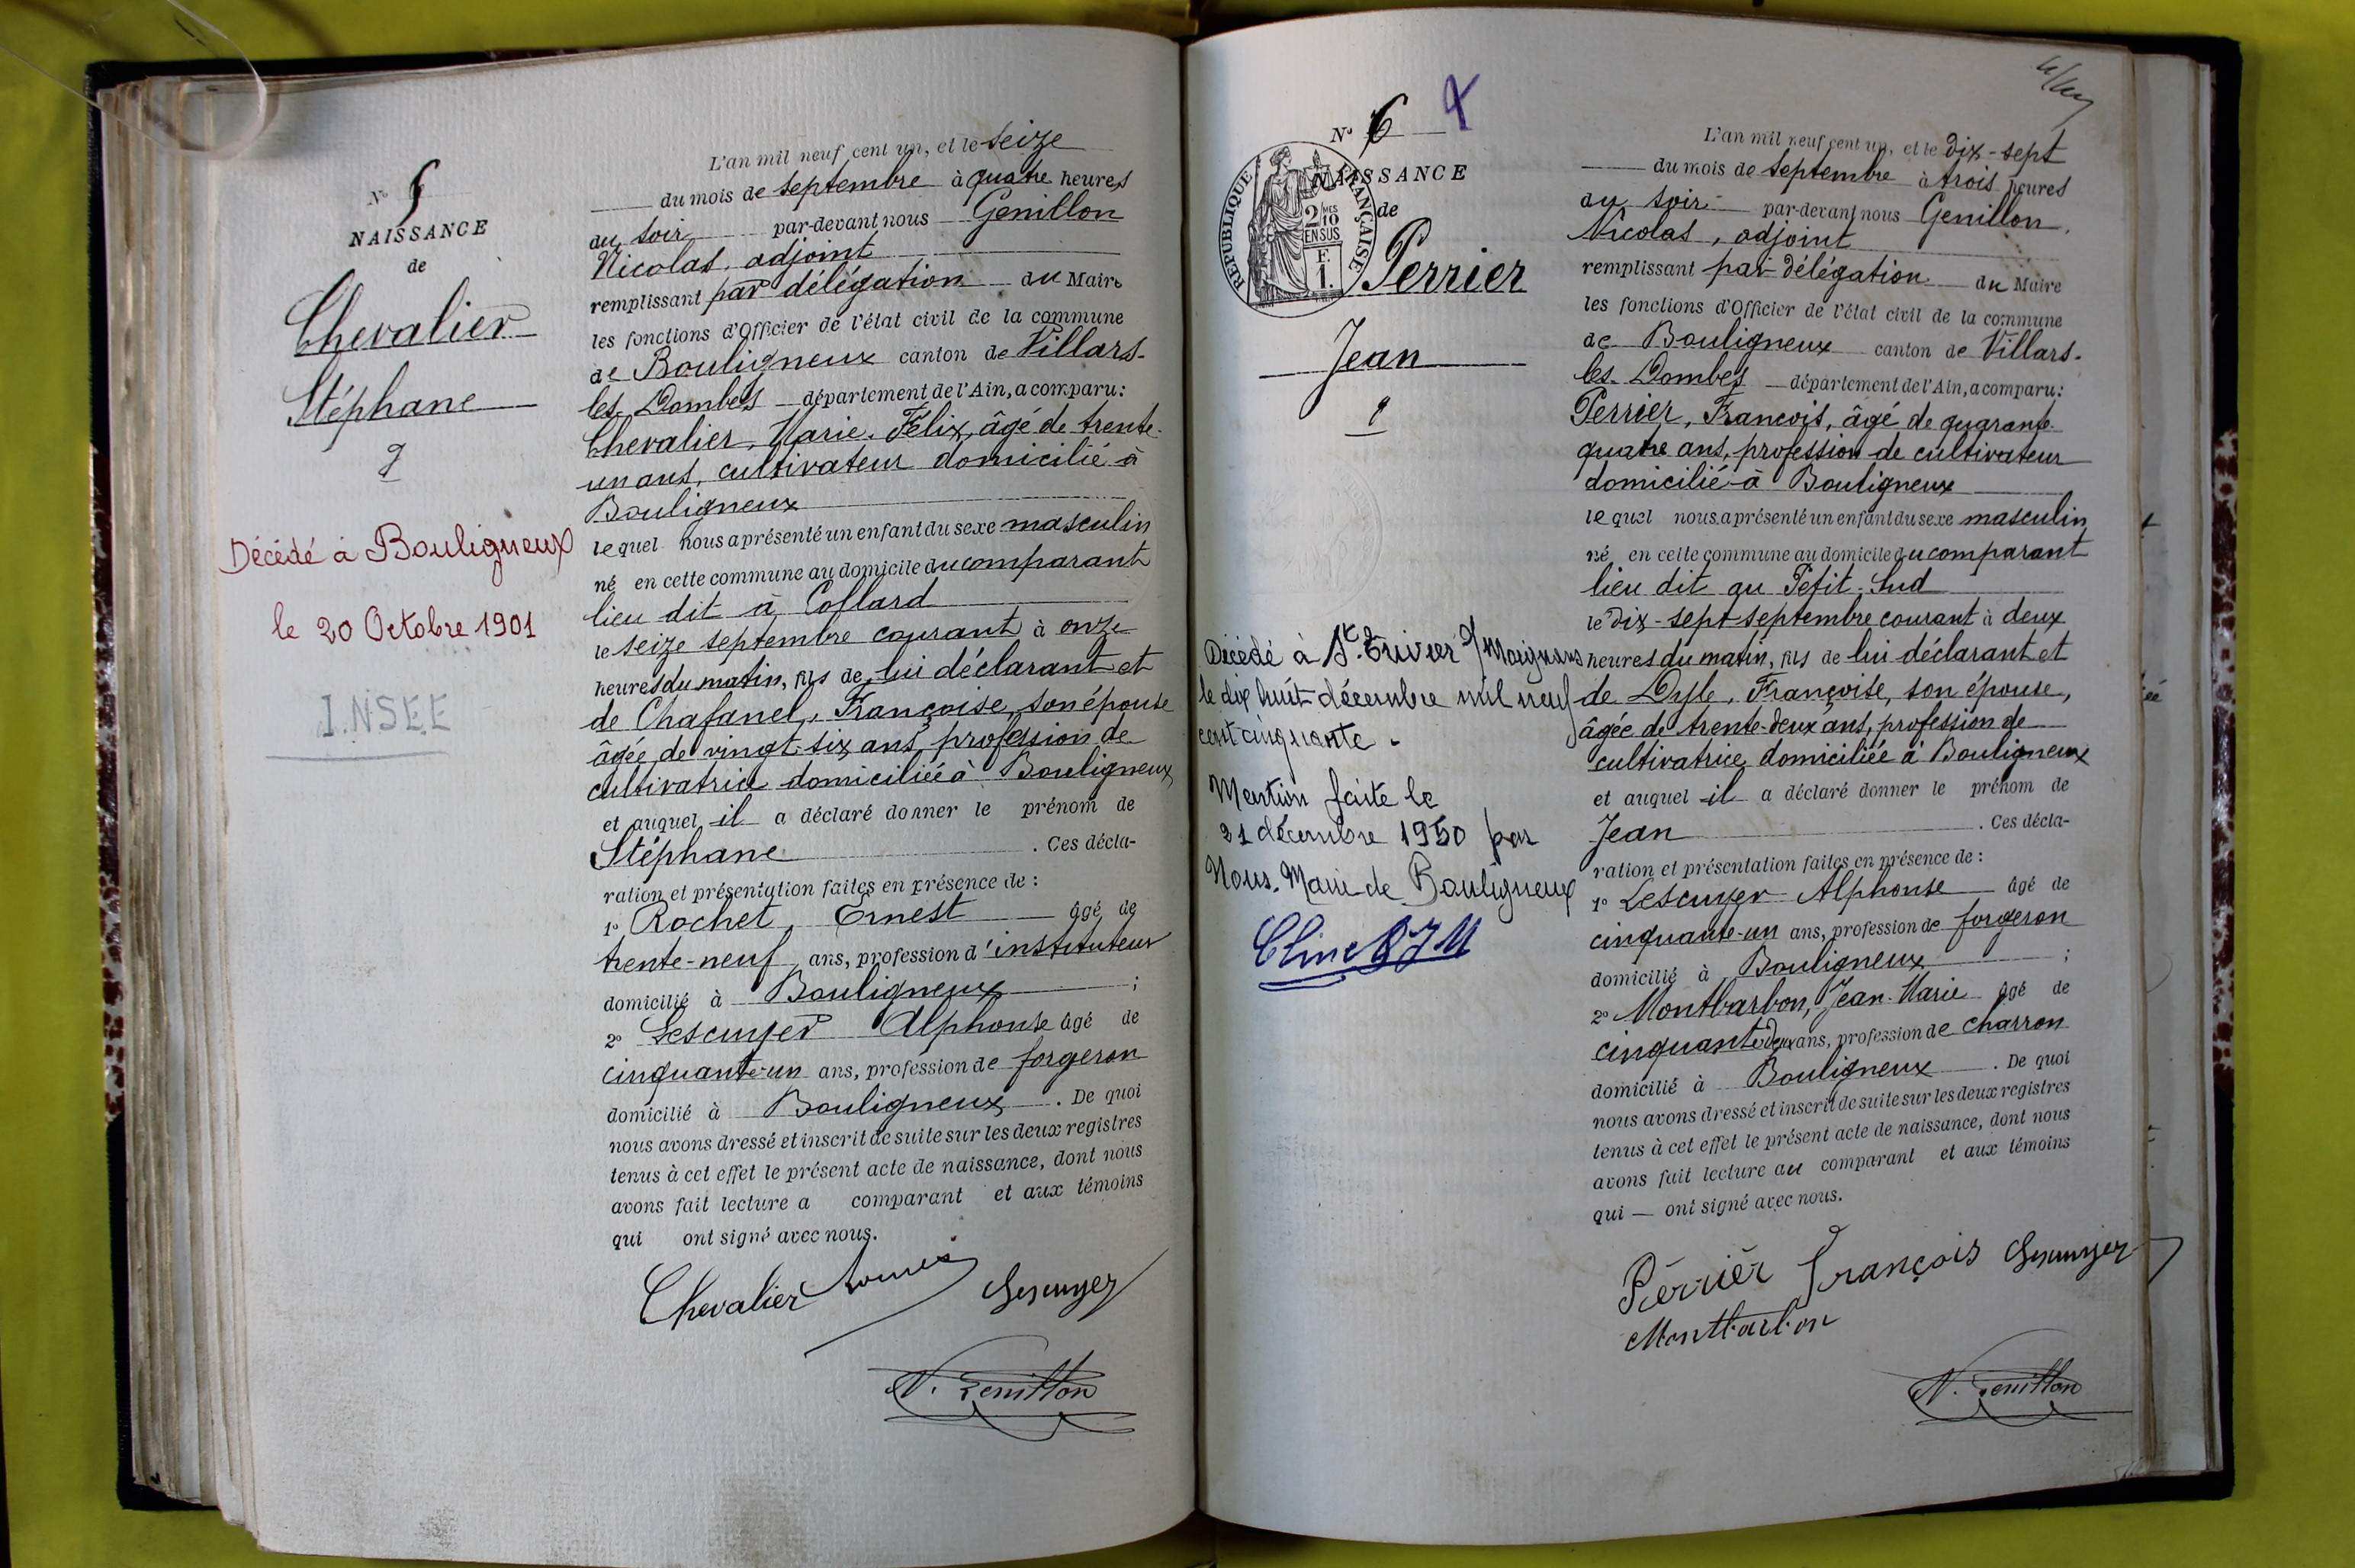 N° 5
NAISSANCE
de
Chevalier
Stéphane
Décédé à Bouligneux
le 20 Octobre 1901
INSEE
L'an mil neuf cent un, et le seize
du mois de septembre à quatre heures
du soir par-devant nous Genillon
Nicolas, adjoint
remplissant par délégation du Maire
les fonctions d'Officier de l'état civil de la commune
de Bouligneux canton de Villars-
les-Dombes département de l'Ain, a comparu:
Chevalier, Marie-Félix, âgé de trente-
un ans, cultivateur domicilié à
Bouligneux
lequel nous a présenté un enfant du sexe masculin
né en cette commune au domicile du comparant
lieu dit à Collard
le seize septembre courant à onze
heures du matin, fils de lui déclarant et
de Chafanel, Françoise, son épouse
âgée de vingt-six ans, profession de
cultivatrice domiciliée à Bouligneux
et auquel il a déclaré donner le prénom de
Stéphane . Ces décla-
ration et présentation faites en présence de :
1° Rochet, Ernest âgé de
trente-neuf ans, profession d'instituteur
domicilié à Bouligneux ;
2° Lescuyer Alphonse âgé de
cinquante-un ans, profession de forgeron
domicilié à Bouligneux . De quoi
nous avons dressé et inscrit de suite sur les deux registres
tenus à cet effet le présent acte de naissance, dont nous
avons fait lecture a comparant et aux témoins
qui ont signé avec nous.
Chevalier Lescuyer
N. Genillon
N° 6
NAISSANCE
de
REPUBLIQUE FRANÇAISE
2 MES
10
EN SUS
F.
1.
Perrier
Jean
Décédé à St Trivier s/ Moignans
le dix huit décembre mil neuf
cent cinquante.
Mention faite le
21 décembre 1950 par
Nous, Maire de Bouligneux
L'an mil neuf cent un, et le dix-sept
du mois de septembre à trois heures
du soir par-devant nous Genillon
Nicolas, adjoint
remplissant par délégation du Maire
les fonctions d'Officier de l'état civil de la commune
de Bouligneux canton de Villars-
les-Dombes département de l'Ain, a comparu:
Perrier, François, âgé de quarante-
quatre ans, profession de cultivateur
domicilié à Bouligneux
lequel nous a présenté un enfant du sexe masculin
né en cette commune au domicile du comparant
lieu dit au Petit-Sud
le dix-sept septembre courant à deux
heures du matin, fils de lui déclarant et
de Françoise, son épouse,
âgée de trente-deux ans, profession de
cultivatrice domiciliée à Bouligneux
et auquel il a déclaré donner le prénom de
Jean . Ces décla-
ration et présentation faites en présence de :
1° Lescuyer Alphonse âgé de
cinquante-un ans, profession de forgeron
domicilié à Bouligneux ;
2° Montbarbon, Jean-Marie âgé de
cinquante-deux ans, profession de charron
domicilié à Bouligneux . De quoi
nous avons dressé et inscrit de suite sur les deux registres
tenus à cet effet le présent acte de naissance, dont nous
avons fait lecture au comparant et aux témoins
qui — ont signé avec nous.
Perrier François Lescuyer
Montbarbon
N. Genillon